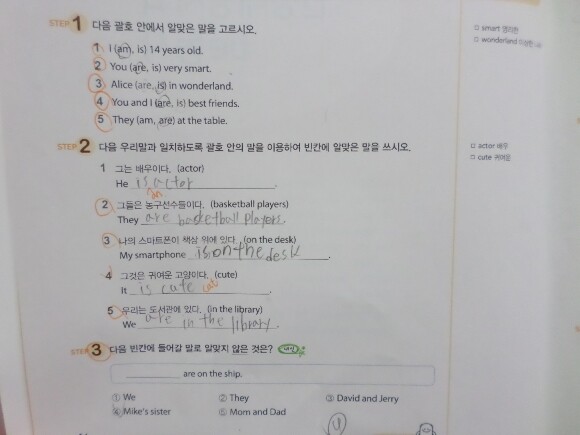 STEP 1 다음 괄호 안에서 알맞은 말을 고르시오.
1 I (am, is) 14 years old.
2 You (are, is) very smart.
3 Alice (are, is) in wonderland.
4 You and I (are, is) best friends.
5 They (am, are) at the table.
□ smart 영리한
□ wonderland
STEP 2 다음 우리말과 일치하도록 괄호 안의 말을 이용하여 빈칸에 알맞은 말을 쓰시오.
1 그는 배우이다. (actor)
He is actor.
an
2 그들은 농구선수들이다. (basketball players)
They are basketball players
3 나의 스마트폰이 책상 위에 있다. (on the desk)
My smartphone is on the desk.
4 그것은 귀여운 고양이다. (cute)
It is cute cat.
5 우리는 도서관에 있다. (in the library)
We are in the library.
□ actor 배우
□ cute 귀여운
STEP 3 다음 빈칸에 들어갈 말로 알맞지 않은 것은? 내신
____________ are on the ship.
① We ② They ③ David and Jerry
④ Mike's sister ⑤ Mom and Dad